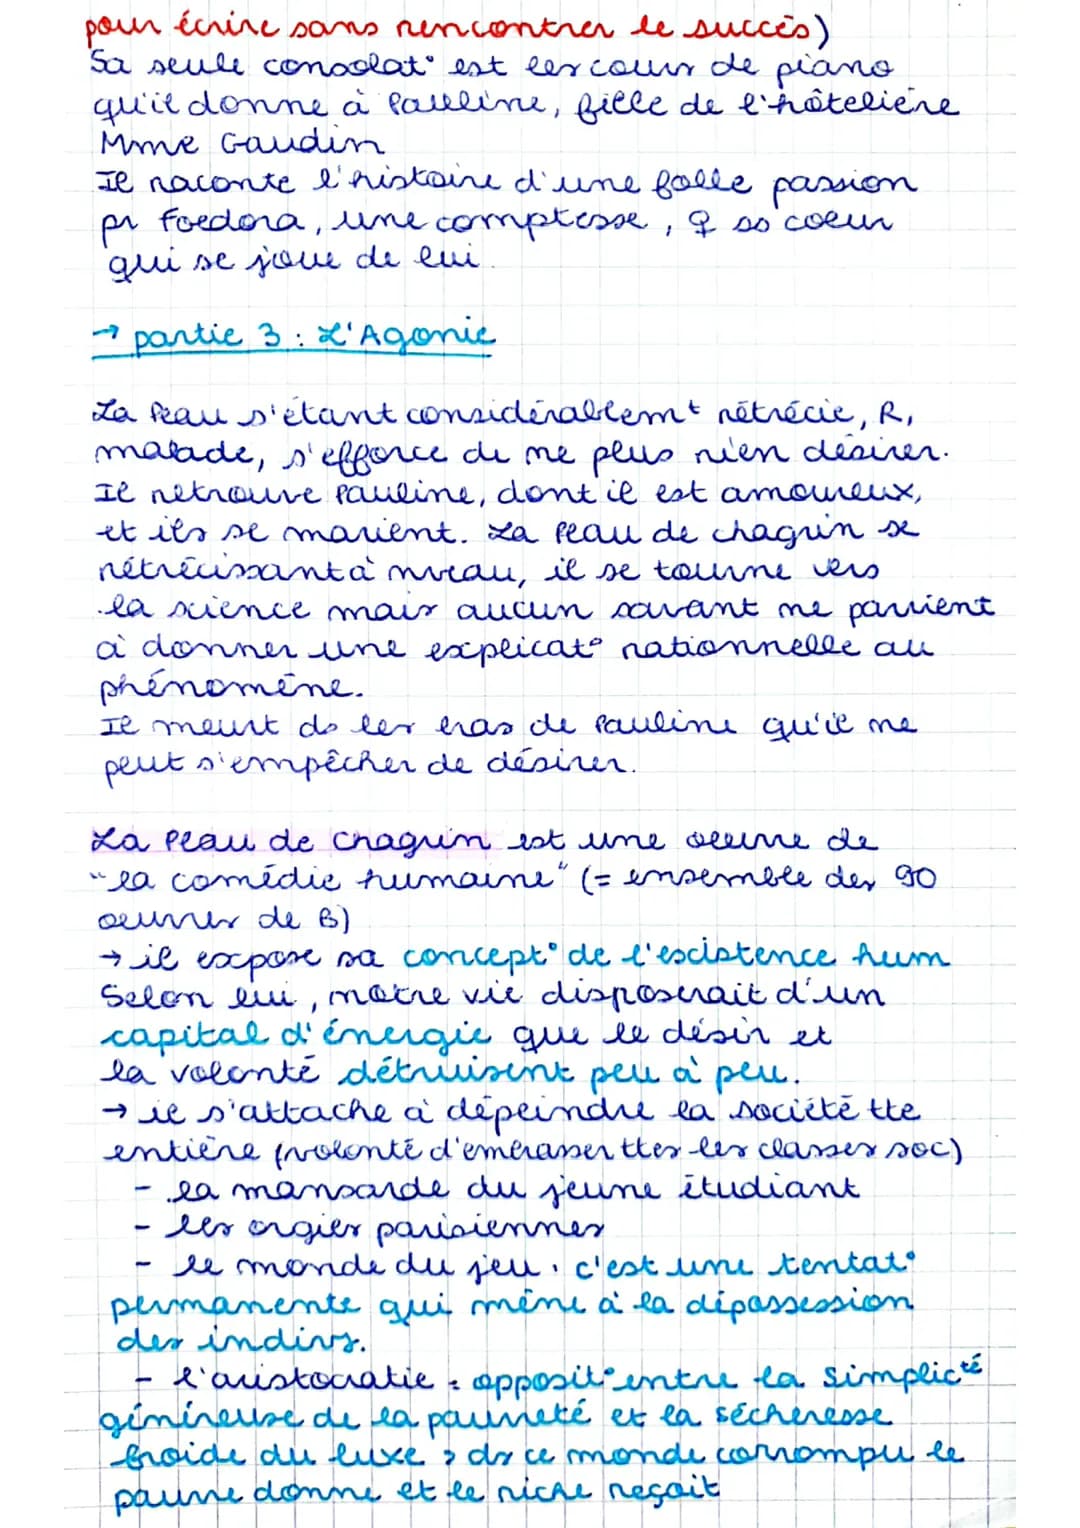 pour écrire sans rencontrer le succès)
Sa seule consolat° est les cours de piano
qu'il donne à Pauline, fille de l'hôtelière
Mme Gaudin
Il raconte l'histoire d'une folle passion
pr Foedora, une comptesse, ss coeur
qui se joue de lui.
→ partie 3 : L'Agonie
La Peau s'étant considérablemt rétrécie, R,
malade, s'efforce de ne plus rien désirer.
Il retrouve Pauline, dont il est amoureux,
et ils se marient. La Peau de chagrin se
rétrécissant à nveau, il se tourne vers
la science mais aucun savant ne parvient
à donner une explicat° rationnelle au
phénomène.
Il meurt ds les bras de Pauline qu'il ne
peut s'empêcher de désirer.
La Peau de Chagrin est une oeuvre de
"la comédie humaine" (= ensemble des 90
oeuvres de B)
→ il expose sa concept° de l'existence hum
Selon lui, notre vie disposerait d'un
capital d'énergie que le désir et
la volonté détruisent peu à peu.
→ il s'attache à dépeindre la société tte
entière (volonté d'embrasser ttes les classes soc)
- la mansarde du jeune étudiant
- les orgies parisiennes
- le monde du jeu : c'est une tentat°
permanente qui mène à la dépossession
des indivs.
- l'aristocratie : opposit° entre la simplicté
généreuse de la pauvreté et la sécheresse
froide du luxe > ds ce monde corrompu le
pauvre donne et le riche reçoit